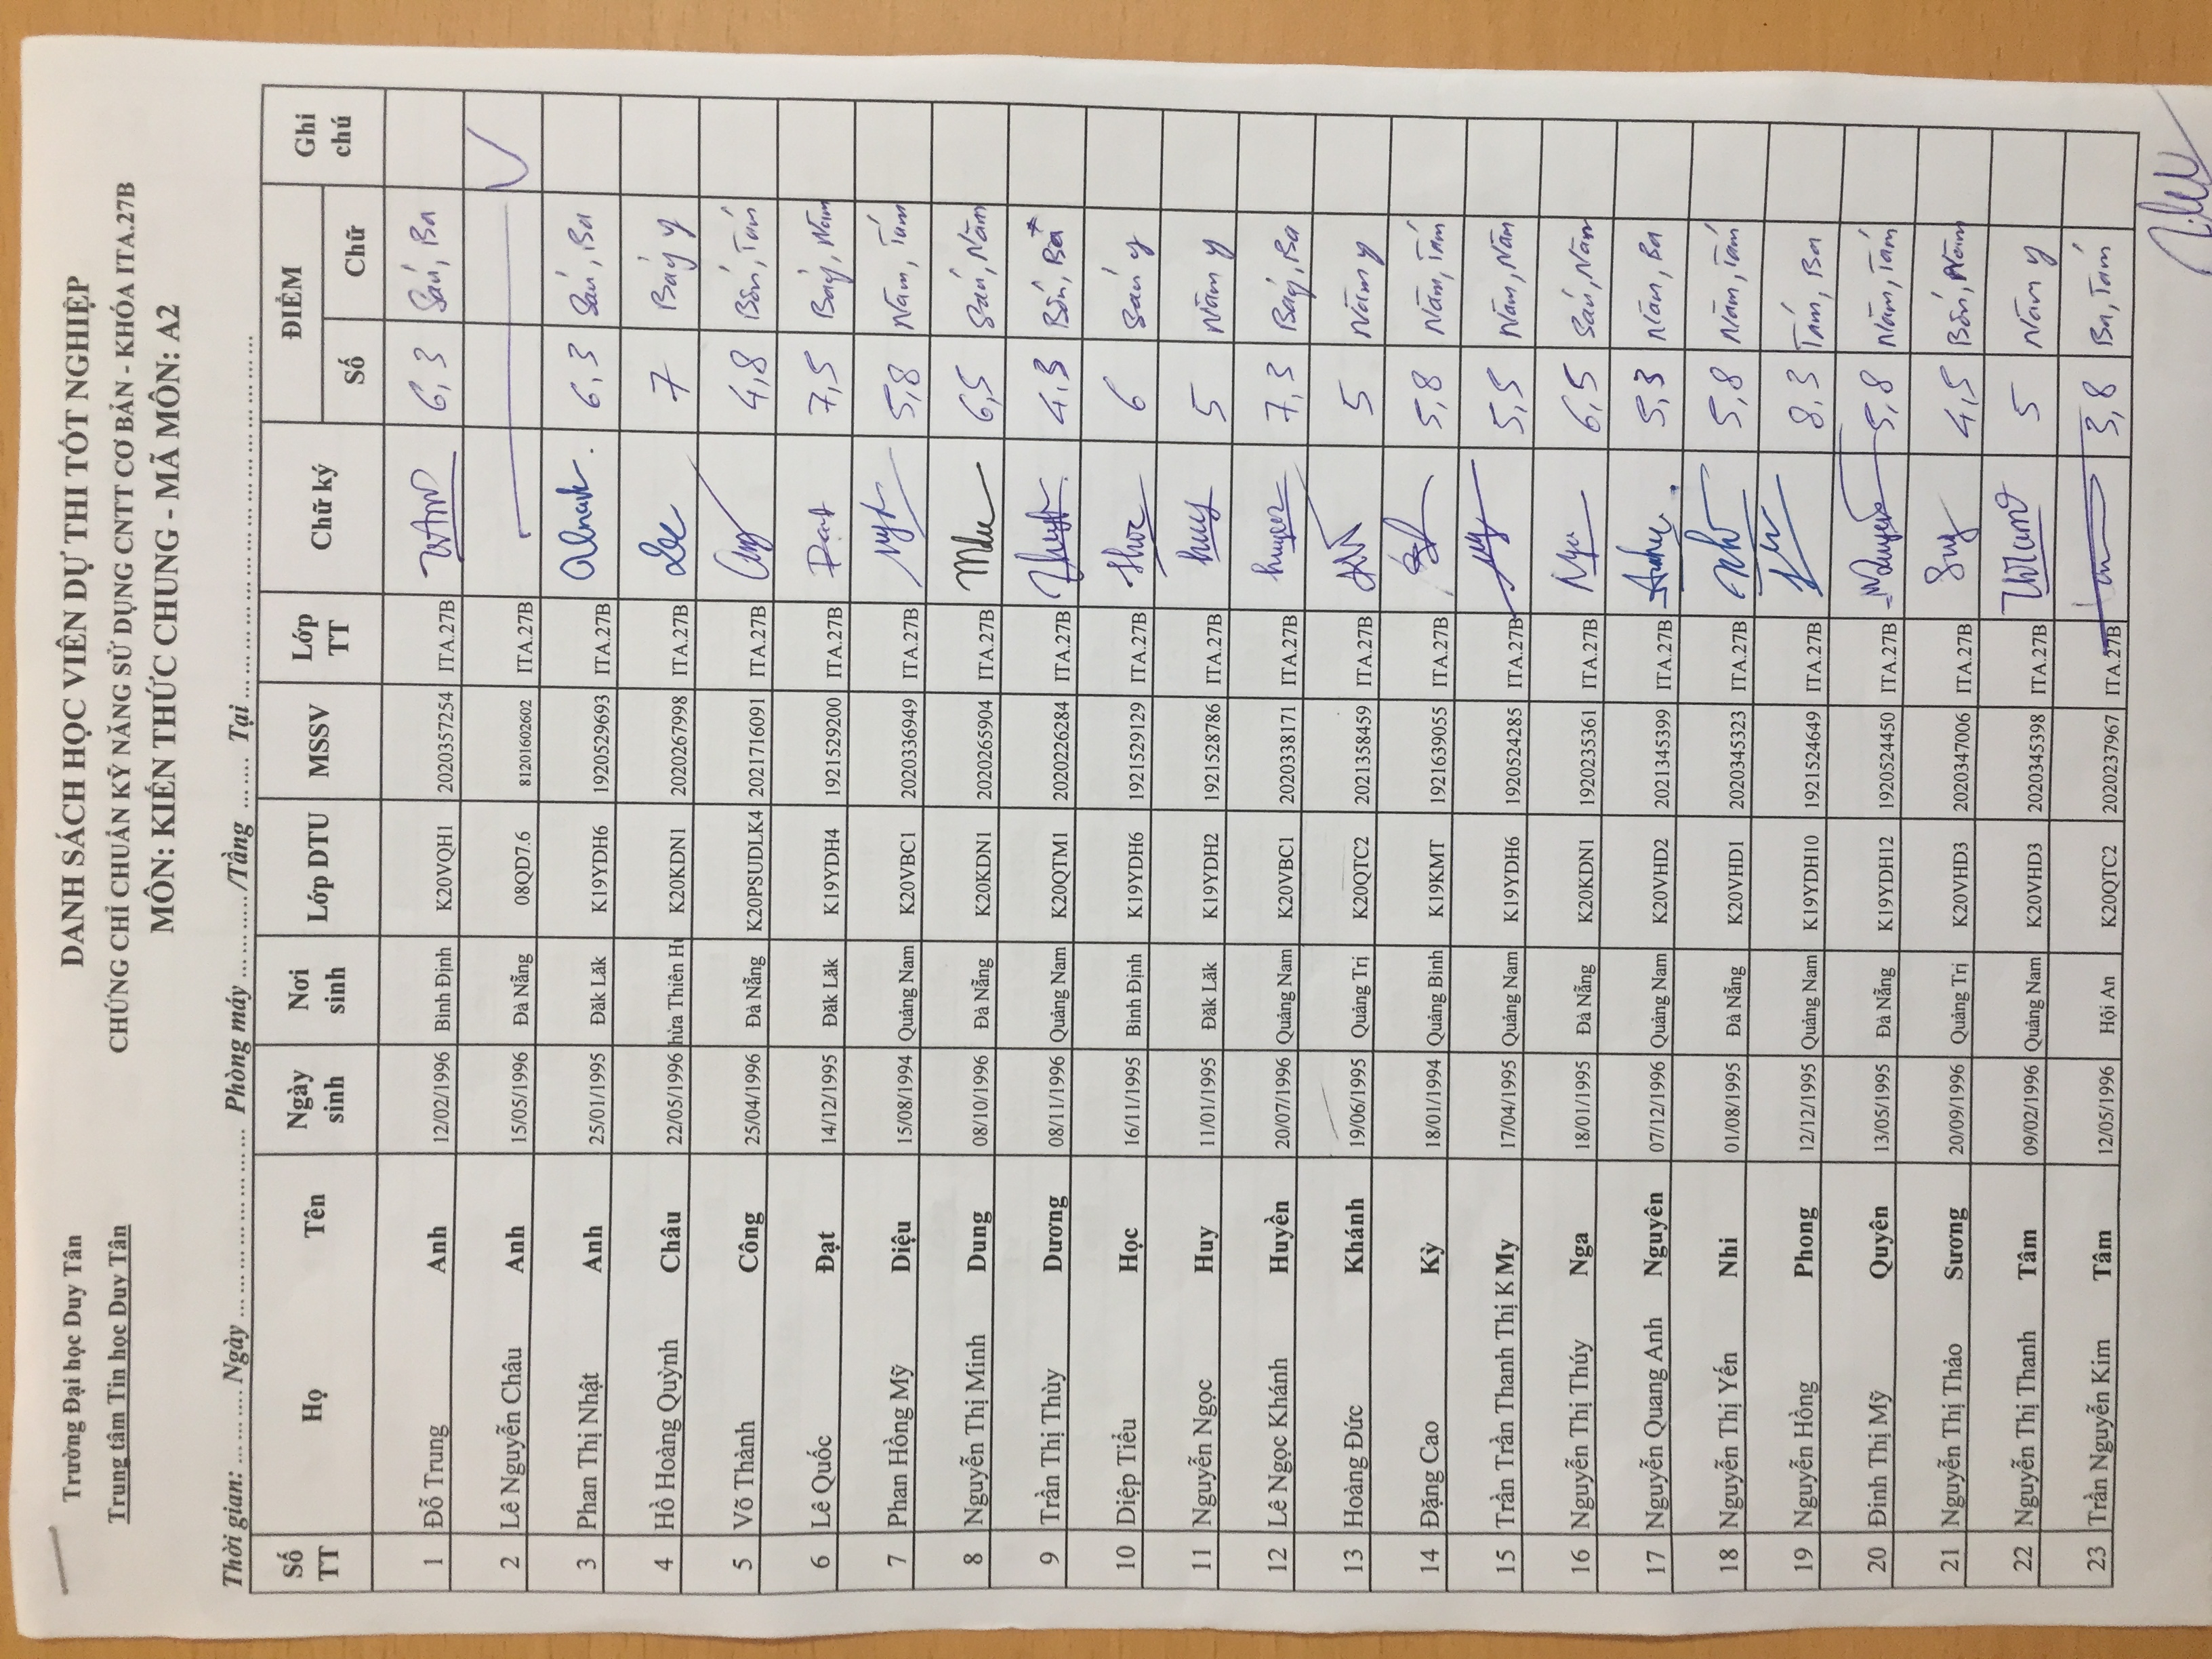 Trường Đại học Duy Tân
Trung tâm Tin học Duy Tân
DANH SÁCH HỌC VIÊN DỰ THI TỐT NGHIỆP
CHỨNG CHỈ CHUẨN KỸ NĂNG SỬ DỤNG CNTT CƠ BẢN - KHÓA ITA.27B
MÔN: KIẾN THỨC CHUNG - MÃ MÔN: A2
Thời gian: ... ... ... Ngày ... ... ... ... ... ... Phòng máy ... ... ... /Tầng ... ... Tại ... ... ... ... ... ... ... ... ... ... ... ...
Số TT Họ Tên Ngày sinh Nơi sinh Lớp DTU MSSV Lớp TT Chữ ký ĐIỂM Ghi chú
Số Chữ
1 Đỗ Trung Anh 12/02/1996 Bình Định K20VQH1 2020357254 ITA.27B 6,3 Sáu, Ba
2 Lê Nguyễn Châu Anh 15/05/1996 Đà Nẵng 08QD7.6 81201602602 ITA.27B
3 Phan Thị Nhật Anh 25/01/1995 Đăk Lăk K19YDH6 1920529693 ITA.27B 6,3 Sáu, Ba
4 Hồ Hoàng Quỳnh Châu 22/05/1996 hừa Thiên H K20KDN1 2020267998 ITA.27B 7 Bảy y
5 Võ Thành Công 25/04/1996 Đà Nẵng K20PSUDLK4 2021716091 ITA.27B 4,8 Bốn, Tám
6 Lê Quốc Đạt 14/12/1995 Đăk Lăk K19YDH4 1921529200 ITA.27B Đạt 7,5 Bảy, Năm
7 Phan Hồng Mỹ Diệu 15/08/1994 Quảng Nam K20VBC1 2020336949 ITA.27B 5,8 Năm, Tám
8 Nguyễn Thị Minh Dung 08/10/1996 Đà Nẵng K20KDN1 2020265904 ITA.27B 6,5 Sáu, Năm
9 Trần Thị Thùy Dương 08/11/1996 Quảng Nam K20QTM1 2020226284 ITA.27B 4,3 Bốn, Ba
10 Diệp Tiểu Học 16/11/1995 Bình Định K19YDH6 1921529129 ITA.27B 6 Sáu y
11 Nguyễn Ngọc Huy 11/01/1995 Đăk Lăk K19YDH2 1921528786 ITA.27B huy 5 Năm y
12 Lê Ngọc Khánh Huyền 20/07/1996 Quảng Nam K20VBC1 2020338171 ITA.27B huyền 7,3 Bảy, Ba
13 Hoàng Đức Khánh 19/06/1995 Quảng Trị K20QTC2 2021358459 ITA.27B 5 Năm y
14 Đặng Cao Kỳ 18/01/1994 Quảng Bình K19KMT 1921639055 ITA.27B 5,8 Năm, Tám
15 Trần Trần Thanh Thị K My 17/04/1995 Quảng Nam K19YDH6 1920524285 ITA.27B 5,5 Năm, Năm
16 Nguyễn Thị Thúy Nga 18/01/1995 Đà Nẵng K20KDN1 1920235361 ITA.27B Nga 6,5 Sáu, Năm
17 Nguyễn Quang Anh Nguyên 07/12/1996 Quảng Nam K20VHD2 2021345399 ITA.27B 5,3 Năm, Ba
18 Nguyễn Thị Yến Nhi 01/08/1995 Đà Nẵng K20VHD1 2020345323 ITA.27B 5,8 Năm, Tám
19 Nguyễn Hồng Phong 12/12/1995 Quảng Nam K19YDH10 1921524649 ITA.27B 8,3 Tám, Ba
20 Đinh Thị Mỹ Quyên 13/05/1995 Đà Nẵng K19YDH12 1920524450 ITA.27B 5,8 Năm, Tám
21 Nguyễn Thị Thảo Sương 20/09/1996 Quảng Trị K20VHD3 2020347006 ITA.27B 4,5 Bốn, Năm
22 Nguyễn Thị Thanh Tâm 09/02/1996 Quảng Nam K20VHD3 2020345398 ITA.27B 5 Năm y
23 Trần Nguyễn Kim Tâm 12/05/1996 Hội An K20QTC2 2020237967 ITA.27B 3,8 Ba, Tám